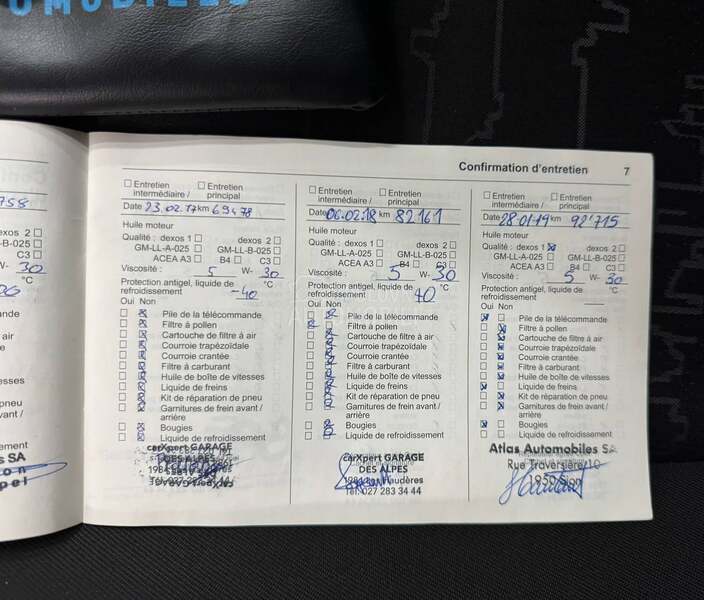 Confirmation d'entretien 7
Entretien intermédiaire /
Entretien principal
Date 23.02.17 km 69478
Huile moteur
Qualité : dexos 1 dexos 2
GM-LL-A-025 GM-LL-B-025
ACEA A3 B4 C3
Viscosité : 5 W- 30
Protection antigel, liquide de °C
refroidissement -40
Oui Non
Pile de la télécommande
Filtre à pollen
Cartouche de filtre à air
Courroie trapézoïdale
Courroie crantée
Filtre à carburant
Huile de boîte de vitesses
Liquide de freins
Kit de réparation de pneu
Garnitures de frein avant /
arrière
Bougies
Liquide de refroidissement
carXpert GARAGE
DES ALPES
Entretien intermédiaire /
Entretien principal
Date 06.02.18 km 82161
Huile moteur
Qualité : dexos 1 dexos 2
GM-LL-A-025 GM-LL-B-025
ACEA A3 B4 C3
Viscosité : 5 W- 30
Protection antigel, liquide de °C
refroidissement 40
Oui Non
Pile de la télécommande
Filtre à pollen
Cartouche de filtre à air
Courroie trapézoïdale
Courroie crantée
Filtre à carburant
Huile de boîte de vitesses
Liquide de freins
Kit de réparation de pneu
Garnitures de frein avant /
arrière
Bougies
Liquide de refroidissement
carXpert GARAGE
DES ALPES
Tél. 027 283 34 44
Entretien intermédiaire /
Entretien principal
Date 28.01.19 km 92'715
Huile moteur
Qualité : dexos 1 dexos 2
GM-LL-A-025 GM-LL-B-025
ACEA A3 B4 C3
Viscosité : 5 W- 30
Protection antigel, liquide de °C
refroidissement
Oui Non
Pile de la télécommande
Filtre à pollen
Cartouche de filtre à air
Courroie trapézoïdale
Courroie crantée
Filtre à carburant
Huile de boîte de vitesses
Liquide de freins
Kit de réparation de pneu
Garnitures de frein avant /
arrière
Bougies
Liquide de refroidissement
Atlas Automobiles SA
Rue Traversière 10
1950 Sion